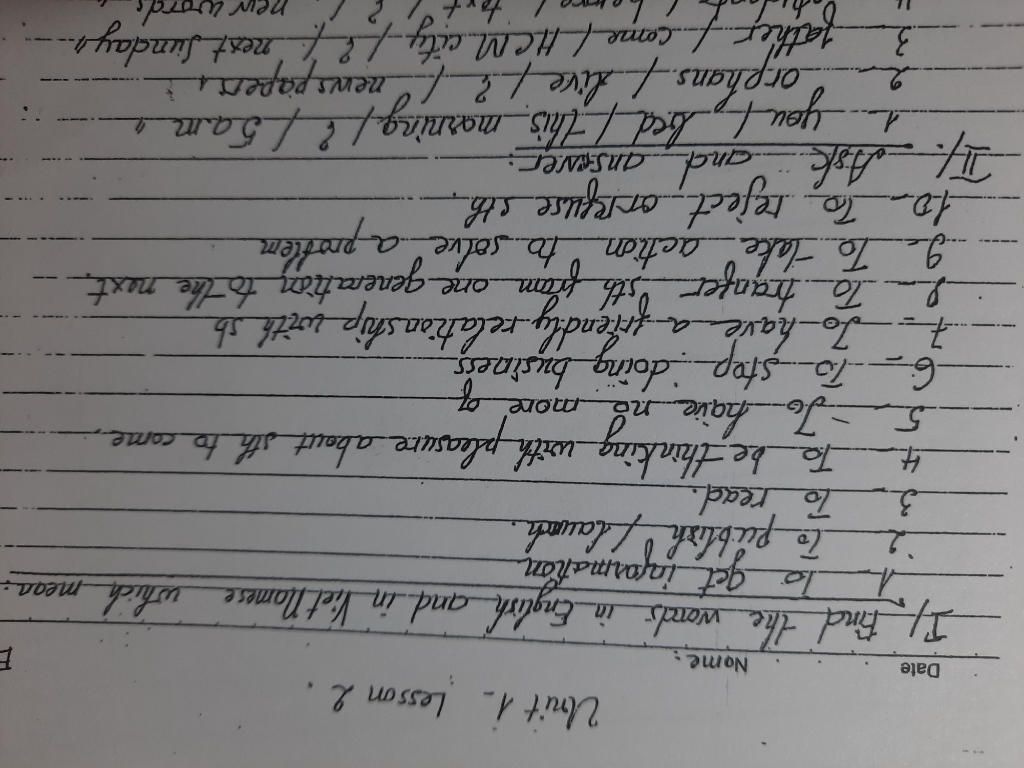 Unit 1 - Lesson 2.
Date
Name:
I/ Find the words in English and in VietNamese which mean:
1- To get information
2- To publish / launch.
3- To read.
4- To be thinking with pleasure about sth to come.
5- To have no more of
6- To stop doing business
7- To have a friendly relationship with sb
8- To tranfer sth from one generation to the next.
9- To take action to solve a problem
10- To reject or refuse sth.
II/. Ask and answer:
1- you / bed / this morning / ? / 5 a.m
2- orphans / live / ? / newspapers
3- father / come / HCM city / ? / next Sunday
4- / text / ? / new words